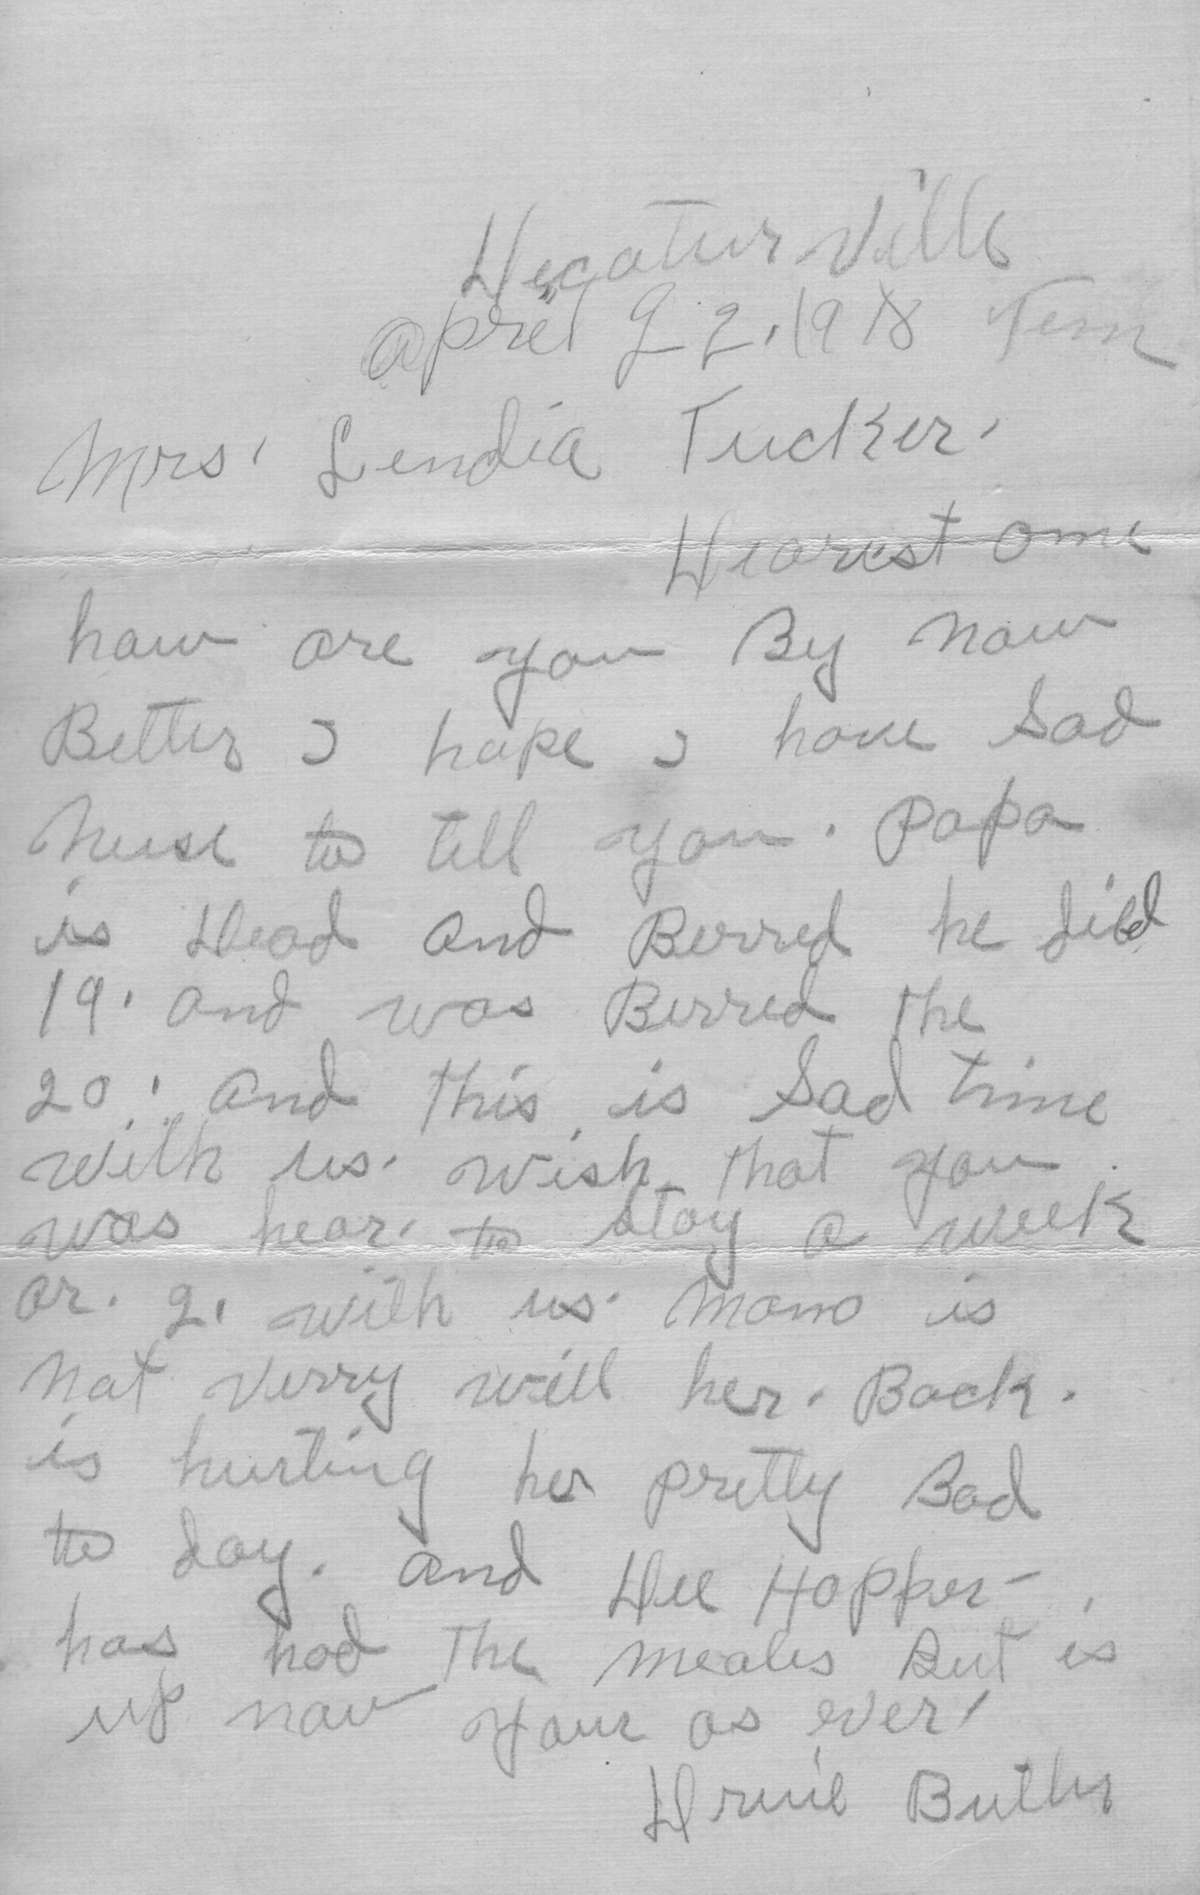 Decaturville
April 22, 1918 Tenn
Mrs. Lendia Tucker.
Dearest one
how are you By now
Better I hope I have Sad
Nuse to tell you. Papa
is Dead and Berred he died
19. and was Berred the
20. and this is Sad time
with us. wish that you
was hear. to stay a week
or. 2. with us. Mama is
Not verry well her. Back.
is hurting her pretty Bad
to day. and Dee Hopper
has had the meales But is
up now your as ever.
Butler